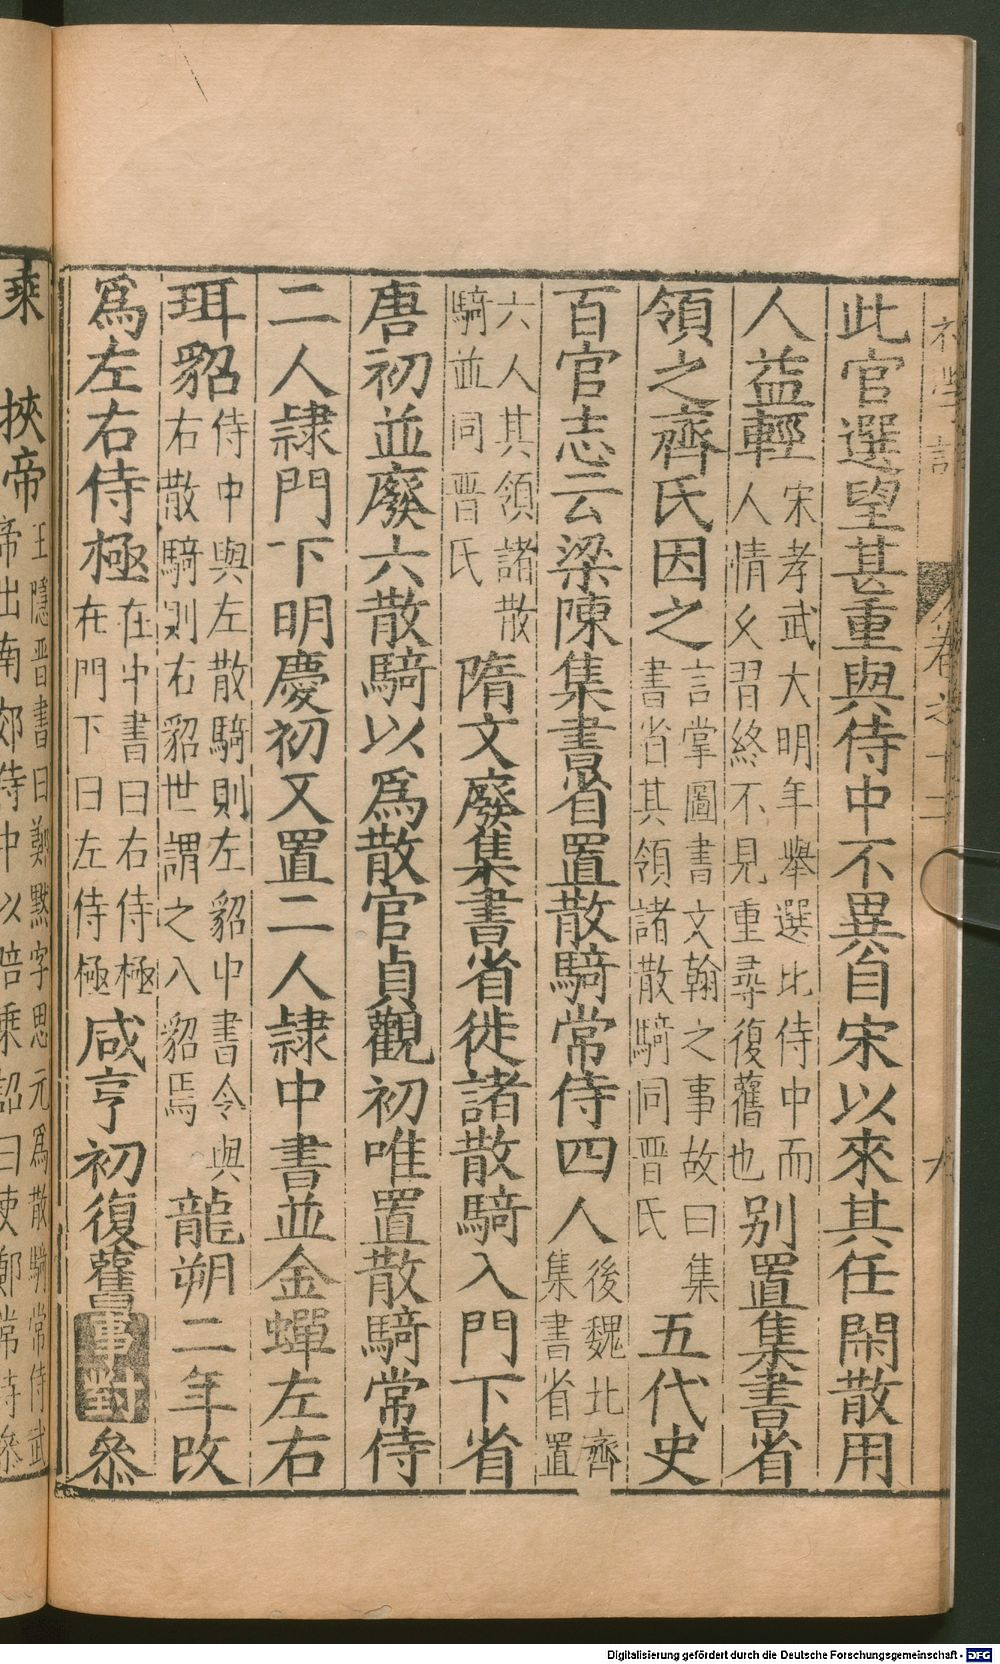 此官選望甚重與侍中不異自宋以來其任閑散用
人益輕宋孝武大明年舉選比侍中而人情久習終不見重尋復舊也别置集書省
領之齊氏因之言掌圖書文翰之事故曰集書省其領諸散騎同晋氏五代史
百官志云梁陳集書省置散騎常侍四人後魏北齊集書省置
六人其領諸散騎並同晋氏隋文廢集書省徙諸散騎入門下省
唐初並廢六散騎以爲散官貞觀初唯置散騎常侍
二人隷門下明慶初又置二人隷中書並金蟬左右
珥貂侍中與左散騎則左貂中書令與右散騎則右貂世謂之八貂焉龍朔二年改
爲左右侍極在中書曰右侍極在門下曰左侍極咸亨初復舊事對叅
乘 挾帝王隱晋書曰鄭默字思元爲散騎常侍武帝出南郊侍中以陪乘詔曰使鄭常侍叅
Digitalisierung gefördert durch die Deutsche Forschungsgemeinschaft - DFG